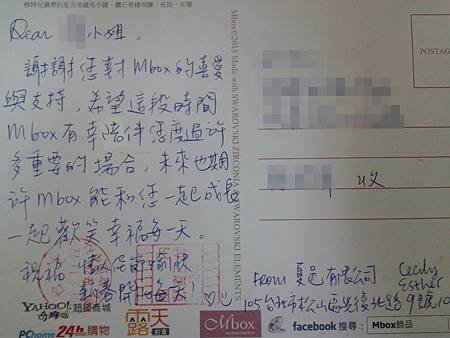 Dear 小姐,
謝謝您對Mbox的喜愛
與支持,希望這段時間
Mbox有幸陪伴您度過許
多重要的場合,未來也期
許Mbox能和您一起成長
一起歡笑幸福每一天。
祝福 情人佳節愉快
新春開心每天!
收
From 夏邑有限公司 Cecily
Esther
105台北市松山區光復北路9號10
Mbox©2015 Made with SWAROVSKI ZIRCONIA/SWAROVSKI ELEMENTS
POSTAG
YAHOO!
奇摩 超級商城
PChome 24h購物
露天
拍賣
Mbox
facebook 搜尋: Mbox飾品